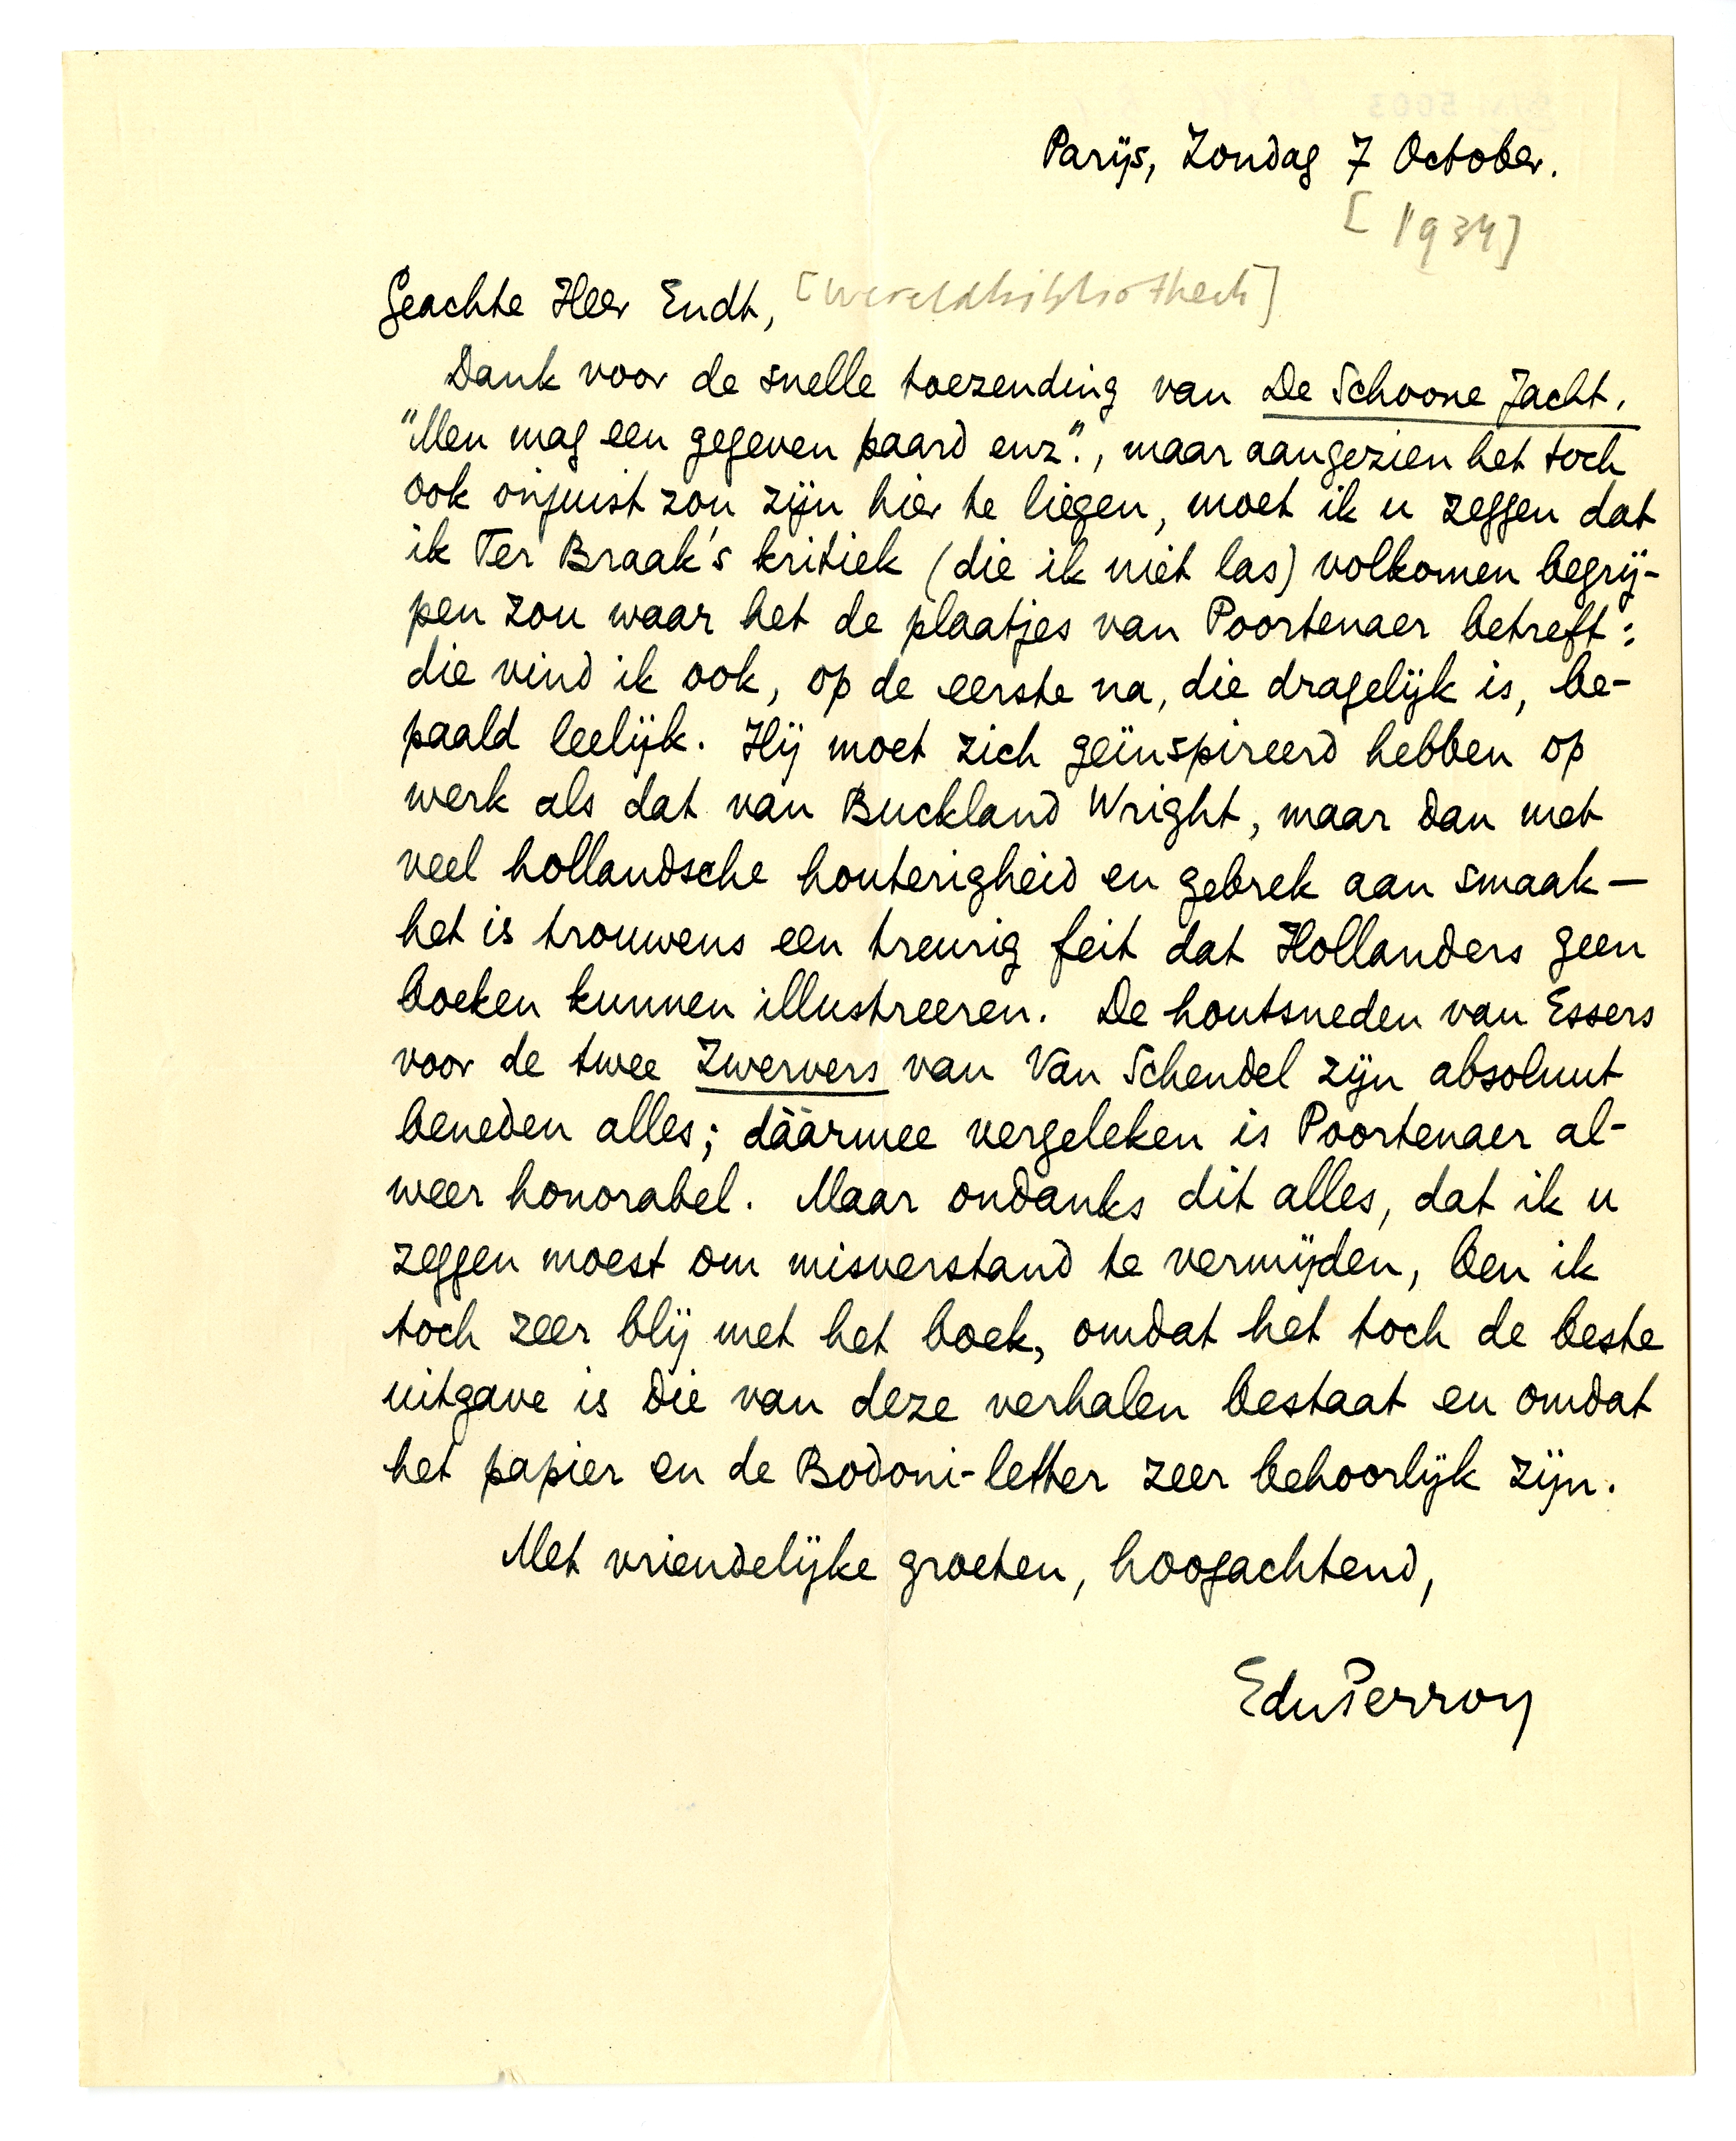 Parijs, Zondag 7 October.
[1934]
Geachte Heer Endt, [Wereldbibliotheek]
Dank voor de snelle toezending van De Schoone Jacht.
"Men mag een gegeven paard enz.", maar aangezien het toch
ook onjuist zou zijn hier te liegen, moet ik u zeggen dat
ik Ter Braak's kritiek (die ik niet las) volkomen begrij-
pen zou waar het de plaatjes van Poortenaer betreft:
die vind ik ook, op de eerste na, die dragelijk is, be-
paald leelijk. Hij moet zich geïnspireerd hebben op
werk als dat van Buckland Wright, maar dan met
veel hollandsche houterigheid en gebrek aan smaak —
het is trouwens een treurig feit dat Hollanders geen
boeken kunnen illustreeren. De houtsneden van Essers
voor de twee Zwervers van Van Schendel zijn absoluut
beneden alles; dáármee vergeleken is Poortenaer al-
weer honorabel. Maar ondanks dit alles, dat ik u
zeggen moest om misverstand te vermijden, ben ik
toch zeer blij met het boek, omdat het toch de beste
uitgave is die van deze verhalen bestaat en omdat
het papier en de Bodoni-letter zeer behoorlijk zijn.
Met vriendelijke groeten, hoogachtend,
EduPerron